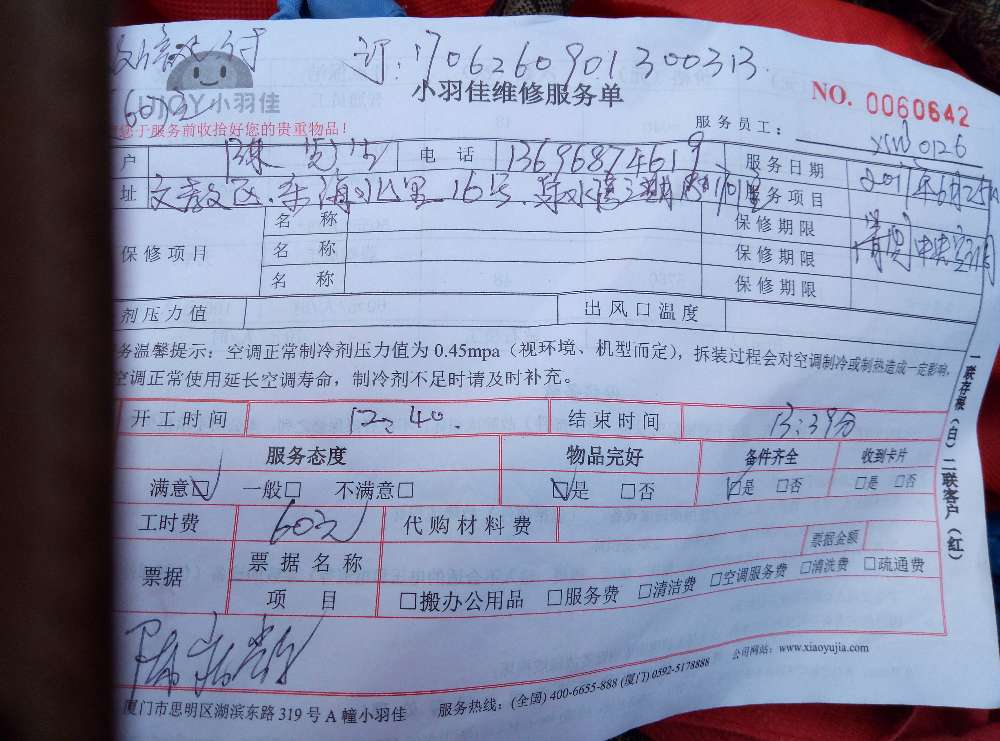 订:1706260901300313
JOY 小羽佳
小羽佳维修服务单
NO. 0060642
60元
您于服务前收拾好您的贵重物品!
服务员工: xm0126
户 电话 13696874619 服务日期 2017年6月25日
址 服务项目 清洗中央空调
保修项目 名称 保修期限
名称 保修期限
名称 保修期限
剂压力值 出风口温度
务温馨提示:空调正常制冷剂压力值为0.45mpa(视环境、机型而定),拆装过程会对空调制冷或制热造成一定影响,
空调正常使用延长空调寿命,制冷剂不足时请及时补充。
开工时间 12:40. 结束时间 13:39分
服务态度 物品完好 备件齐全 收到卡片
满意□ 一般□ 不满意□ □是 □否 □是 □否 □是 □否
工时费 60元 代购材料费
票据 票据名称 票据金额
项目 □搬办公用品 □服务费 □清洁费 □空调服务费 □清洗费 □疏通费
一联存根(白)二联客户(红)
厦门市思明区湖滨东路319号A幢小羽佳 服务热线:(全国) 400-6655-888 (厦门) 0592-5178888 公司网站:www.xiaoyujia.com